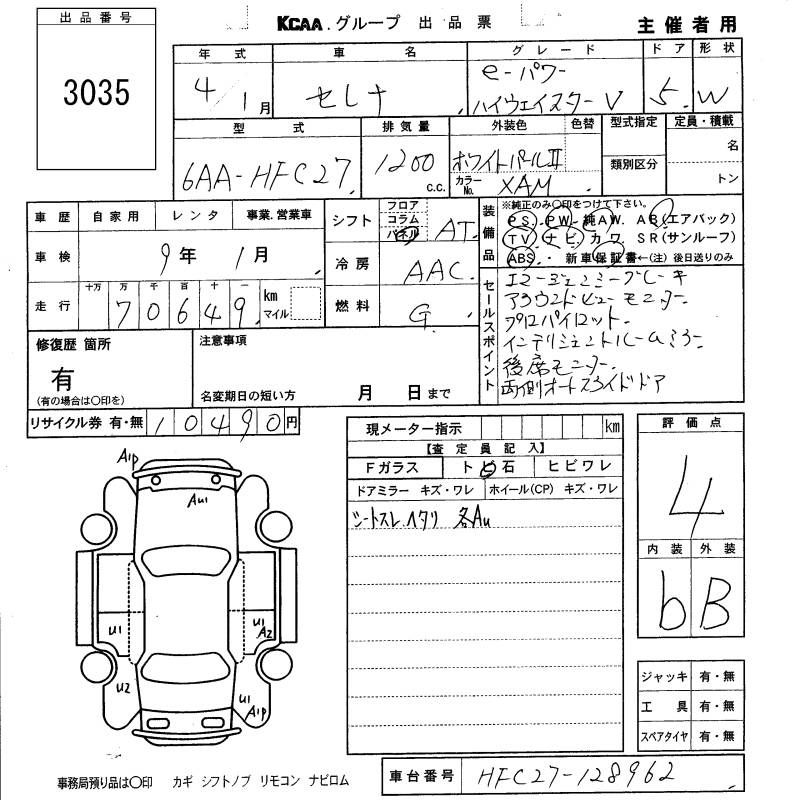 出品番号
3035
KCAA.グループ 出品票
主催者用
年式 車名 グレード ドア 形状
4/1月 セレナ e-パワー ハイウェイスターV 5 W
型式 排気量 外装色 色替 型式指定 定員・積載
6AA-HFC27 1200 c.c. ホワイトパールⅡ 名
カラーNo. XAM 類別区分 トン
車歴 自家用 レンタ 事業.営業車
車検 9年 1月
走行 十万 万 千 百 十 一 km マイル
70649
シフト フロア コラム パネル AT
冷房 AAC
燃料 G
装備品
※純正のみ○印をつけて下さい。
PS. PW. 純AW. AB(エアバック)
TV ナビ. カワ SR(サンルーフ)
ABS. 新車保証書←(注)後日送りのみ
セールスポイント
エマージェンシーブレーキ
アラウンドビューモニター
プロパイロット.
インテリジェントルームミラー
後席モニター
両側オートスライドドア
修復歴 箇所
有
(有の場合は○印を)
注意事項
名変期日の短い方 月 日まで
リサイクル券 有・無 10490円
現メーター指示 km
【査定員記入】
Fガラス トビ石 ヒビワレ
ドアミラー キズ・ワレ ホイール(CP) キズ・ワレ
シートスレ.ヘタリ 各AU
評価点
4
内装 外装
b B
A1P
AU1
U1
U1
A2
U2
U1
A1P
ジャッキ 有・無
工具 有・無
スペアタイヤ 有・無
事務局預り品は○印 カギ シフトノブ リモコン ナビロム
車台番号 HFC27-128962